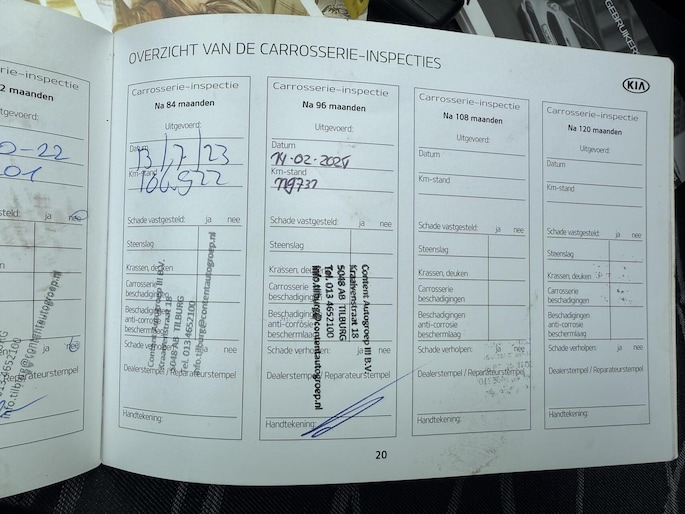 GEBRUIKER
OVERZICHT VAN DE CARROSSERIE-INSPECTIES
KIA
rie-inspectie
2 maanden
tgevoerd:
0-22
01
steld: ja nee
013 4652100
Reparatuurstempel
info.tilburg@contentautogroep.nl
Carrosserie-inspectie
Na 84 maanden
Uitgevoerd:
Datum
13/7/23
Km-stand
106.522
Schade vastgesteld: ja nee
Steenslag
Krassen, deuken
Carrosserie
beschadigingen
Beschadigingen
anti-corrosie
beschermlaag
Schade verholpen: ja nee
Dealerstempel / Reparateurstempel
Content Autogroep III B.V.
Kraaivenstraat 18
5048 AB TILBURG
Tel. 013 4652100
info.tilburg@contentautogroep.nl
Handtekening:
Carrosserie-inspectie
Na 96 maanden
Uitgevoerd:
Datum
14-02-2024
Km-stand
119737
Schade vastgesteld: ja nee
Steenslag
Krassen, deuken
Carrosserie
beschadigingen
Beschadigingen
anti-corrosie
beschermlaag
Schade verholpen: ja nee
Dealerstempel / Reparateurstempel
Content Autogroep III B.V.
Kraaivenstraat 18
5048 AB TILBURG
Tel 013 4652100
info.tilburg@contentautogroep.nl
Handtekening:
Carrosserie-inspectie
Na 108 maanden
Uitgevoerd:
Datum
Km-stand
Schade vastgesteld: ja nee
Steenslag
Krassen, deuken
Carrosserie
beschadigingen
Beschadigingen
anti-corrosie
beschermlaag
Schade verholpen: ja nee
Dealerstempel / Reparateurstempel
Handtekening:
Carrosserie-inspectie
Na 120 maanden
Uitgevoerd:
Datum
Km-stand
Schade vastgesteld: ja nee
Steenslag
Krassen, deuken
Carrosserie
beschadigingen
Beschadigingen
anti-corrosie
beschermlaag
Schade verholpen: ja nee
Dealerstempel / Reparateurstempel
Handtekening:
20